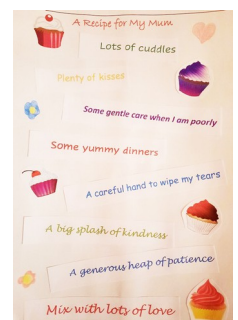 A Recipe for My Mum
Lots of cuddles
Plenty of kisses
Some gentle care when I am poorly
Some yummy dinners
A careful hand to wipe my tears
A big splash of kindness
A generous heap of patience
Mix with lots of love